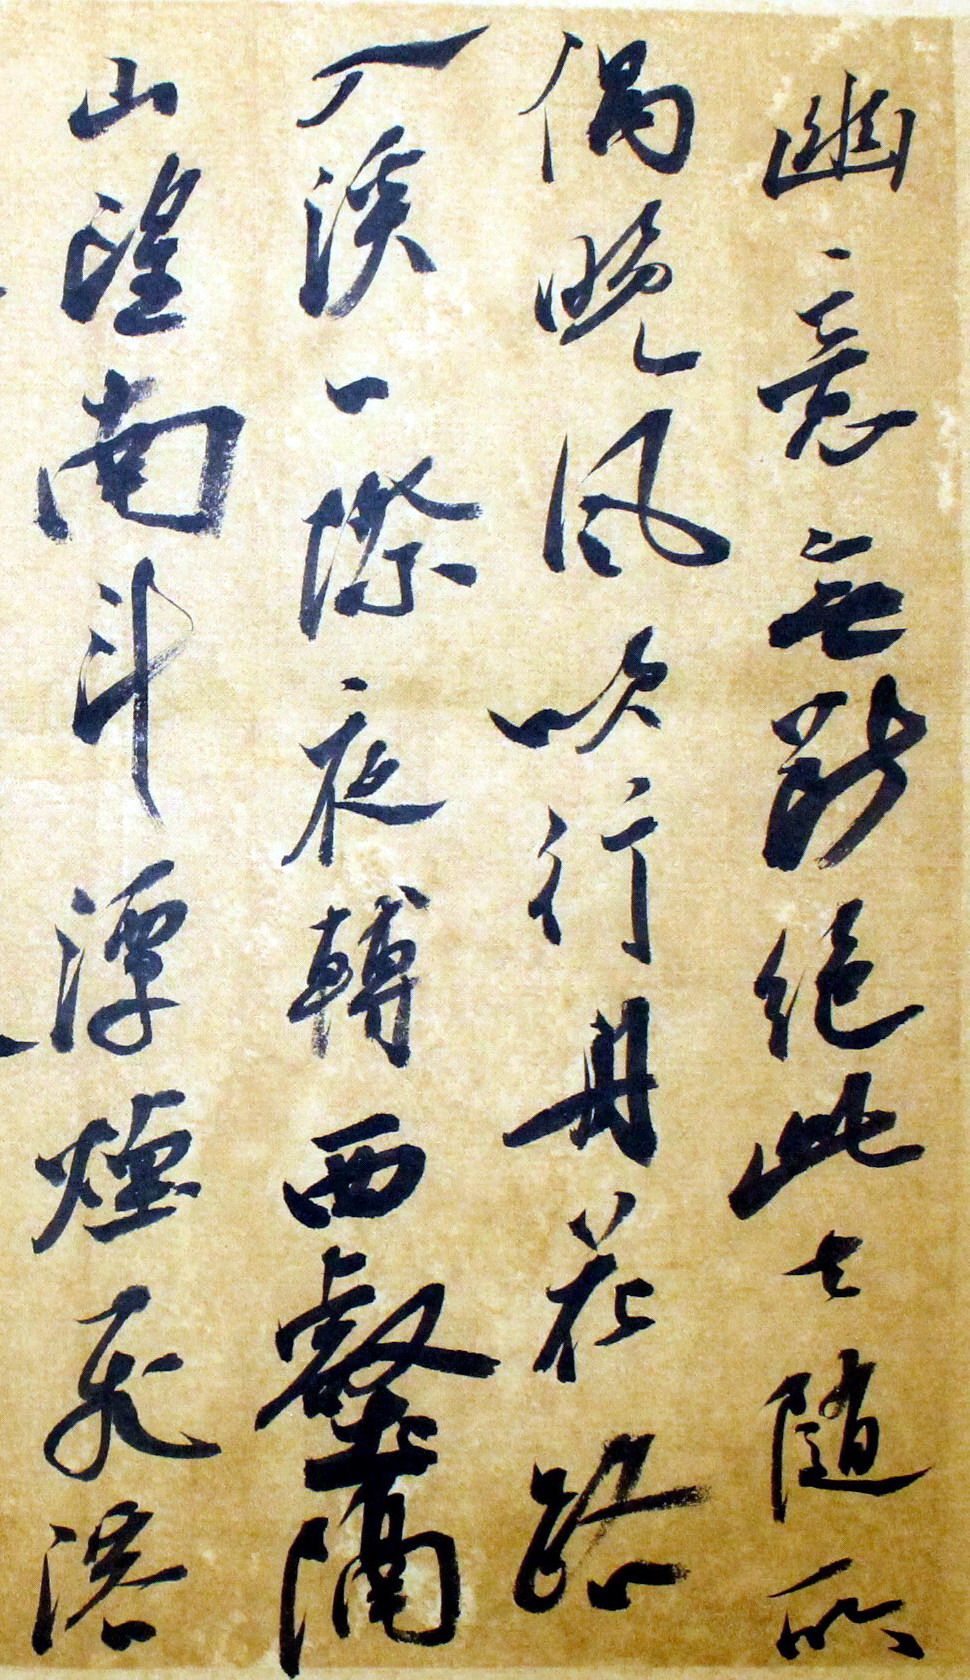 幽意無斷絕此去隨所
偶晚風吹行舟花路
入溪口際夜轉西壑隔
山望南斗潭煙飛溶